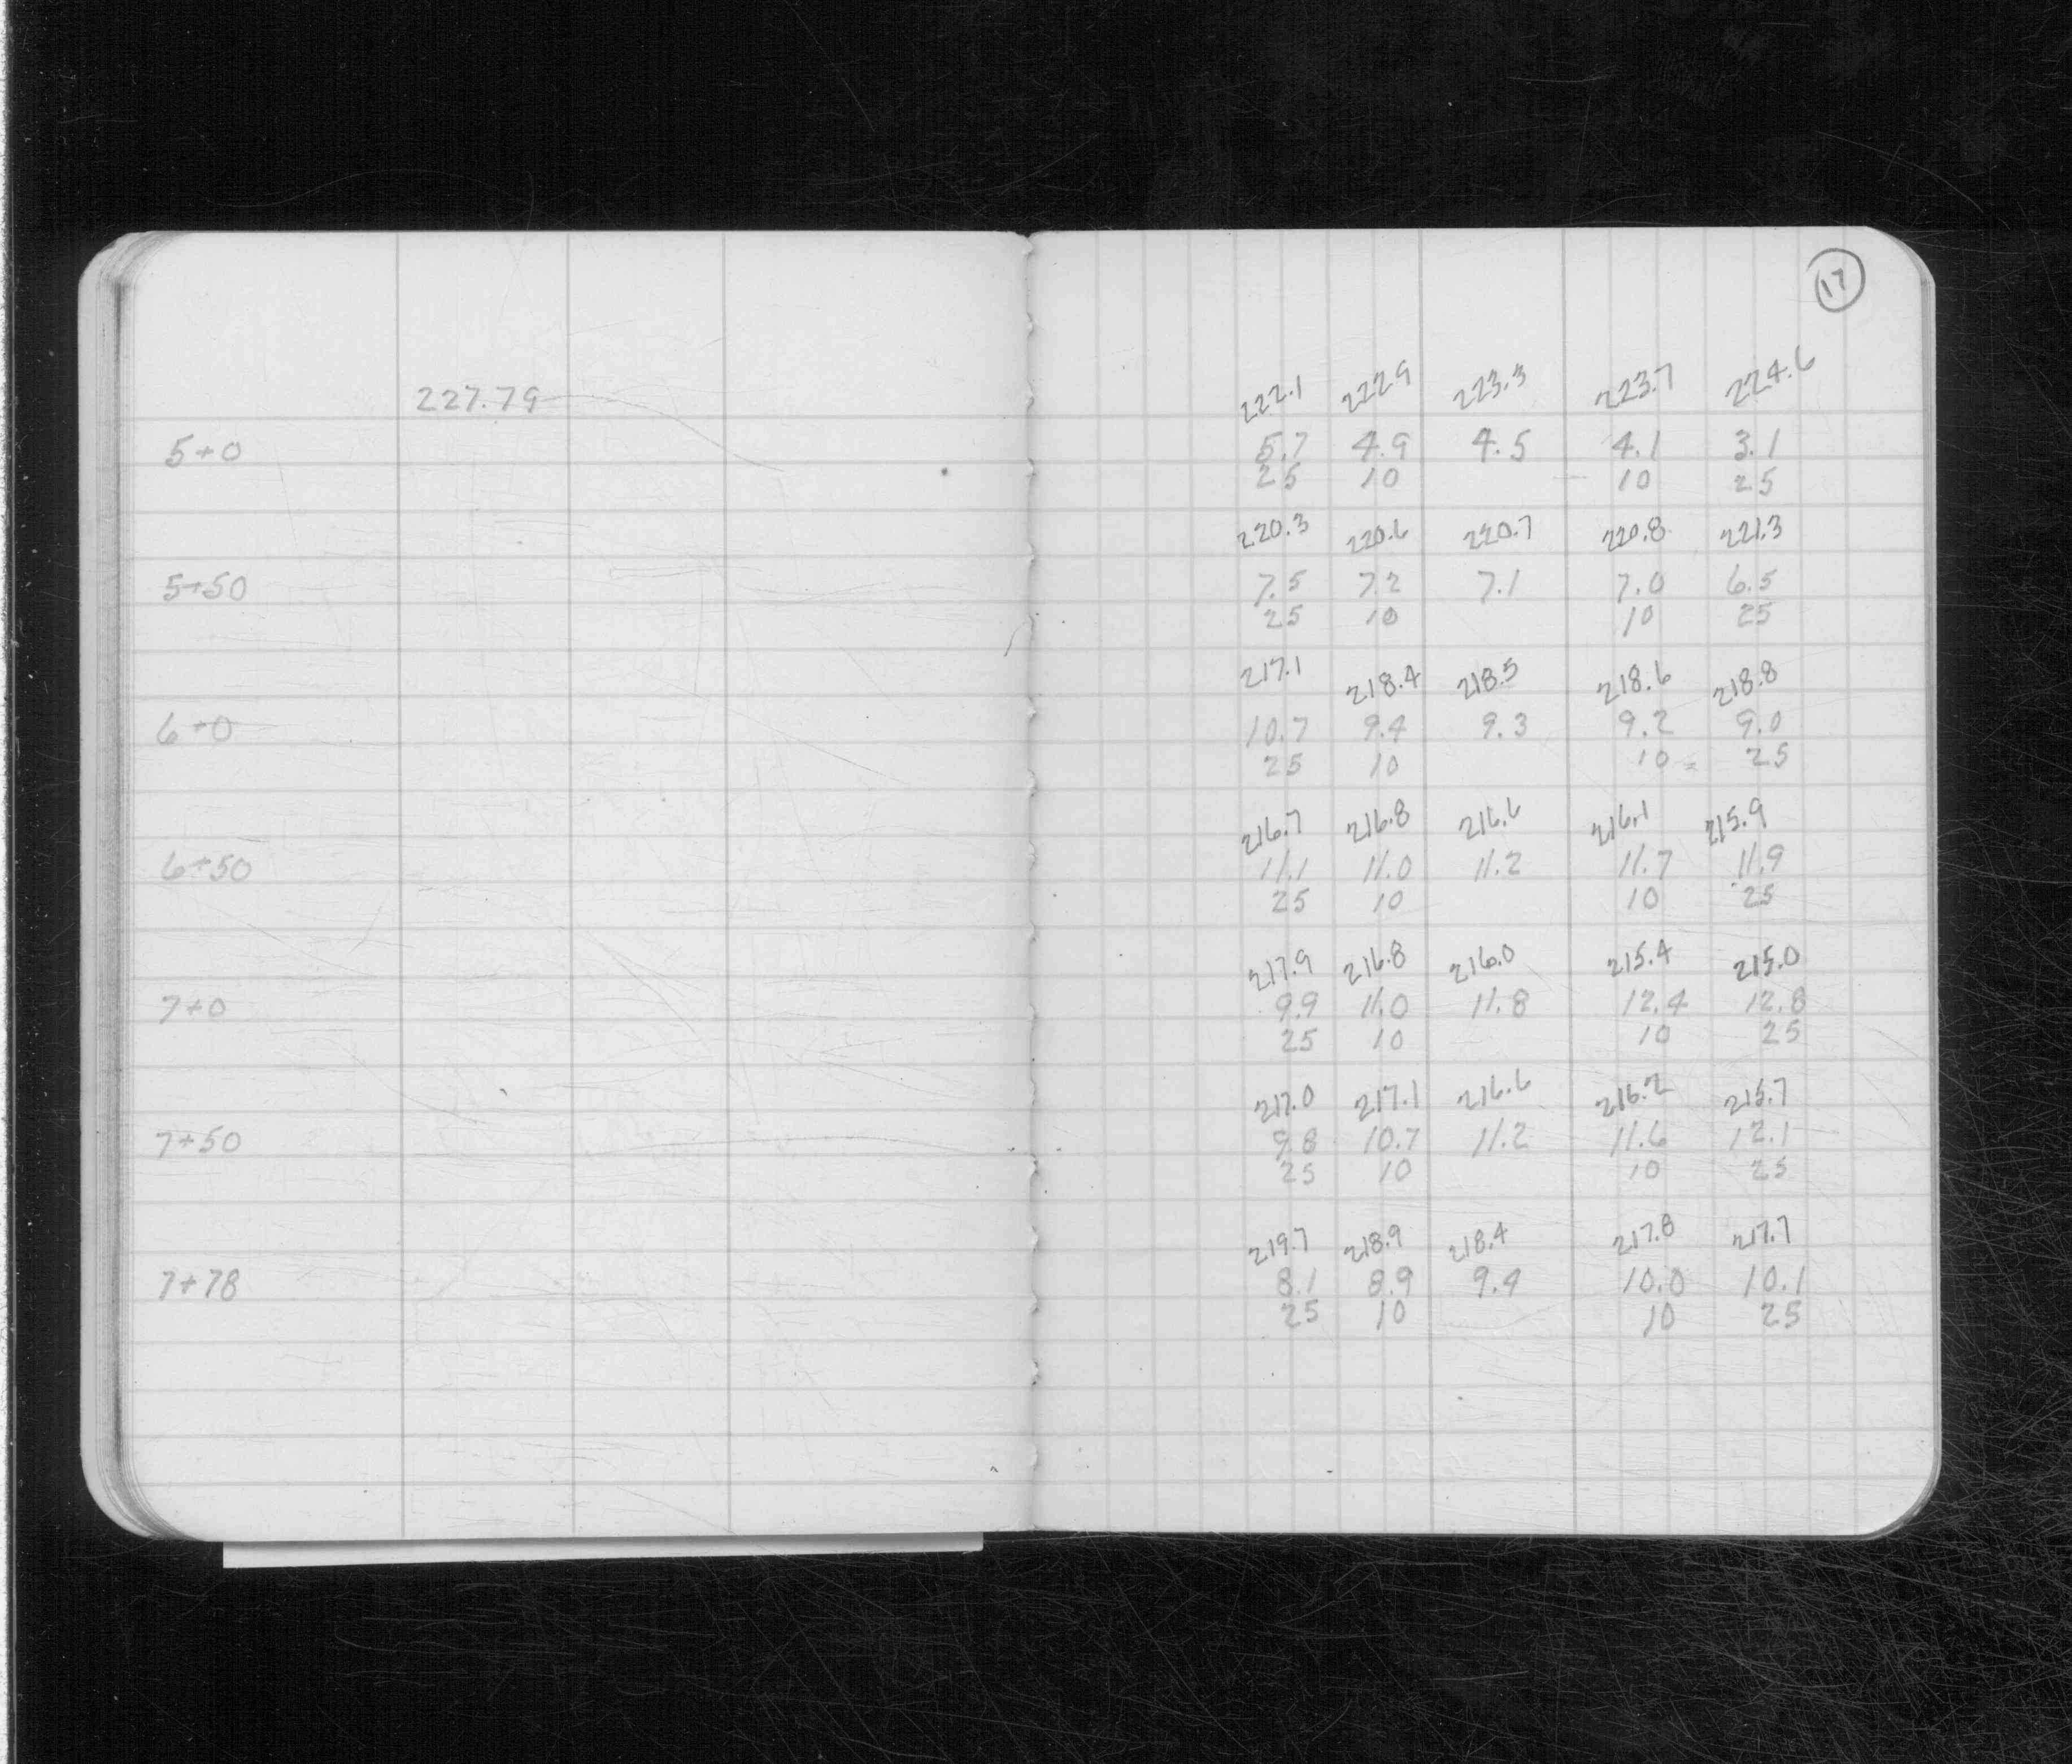 17
227.79 222.1 222.9 223.3 223.7 224.6
5+0 5.7 4.9 4.5 4.1 3.1
25 10 10 25
220.3 220.6 220.7 220.8 221.3
5+50 7.5 7.2 7.1 7.0 6.5
25 10 10 25
217.1 218.4 218.5 218.6 218.8
6+0 10.7 9.4 9.3 9.2 9.0
25 10 10 25
216.7 216.8 216.6 216.1 215.9
6+50 11.1 11.0 11.2 11.7 11.9
25 10 10 25
217.9 216.8 216.0 215.4 215.0
7+0 9.9 11.0 11.8 12.4 12.8
25 10 10 25
217.0 217.1 216.6 216.2 215.7
7+50 9.8 10.7 11.2 11.6 12.1
25 10 10 25
219.7 218.9 218.4 217.8 217.7
7+78 8.1 8.9 9.4 10.0 10.1
25 10 10 25